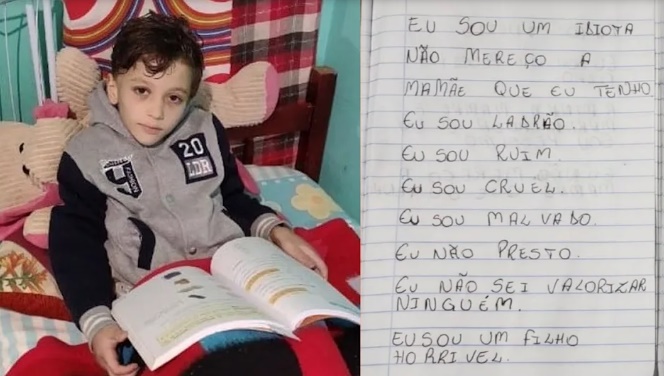 20
LDR
EU SOU UM IDIOTA
NÃO MEREÇO A
MAMÃE QUE EU TENHO
EU SOU LADRÃO.
EU SOU RUIM.
EU SOU CRUEL.
EU SOU MALVADO.
EU NÃO PRESTO.
EU NÃO SEI VALORIZAR
NINGUÉM.
EU SOU UM FILHO
HORRIVEL.